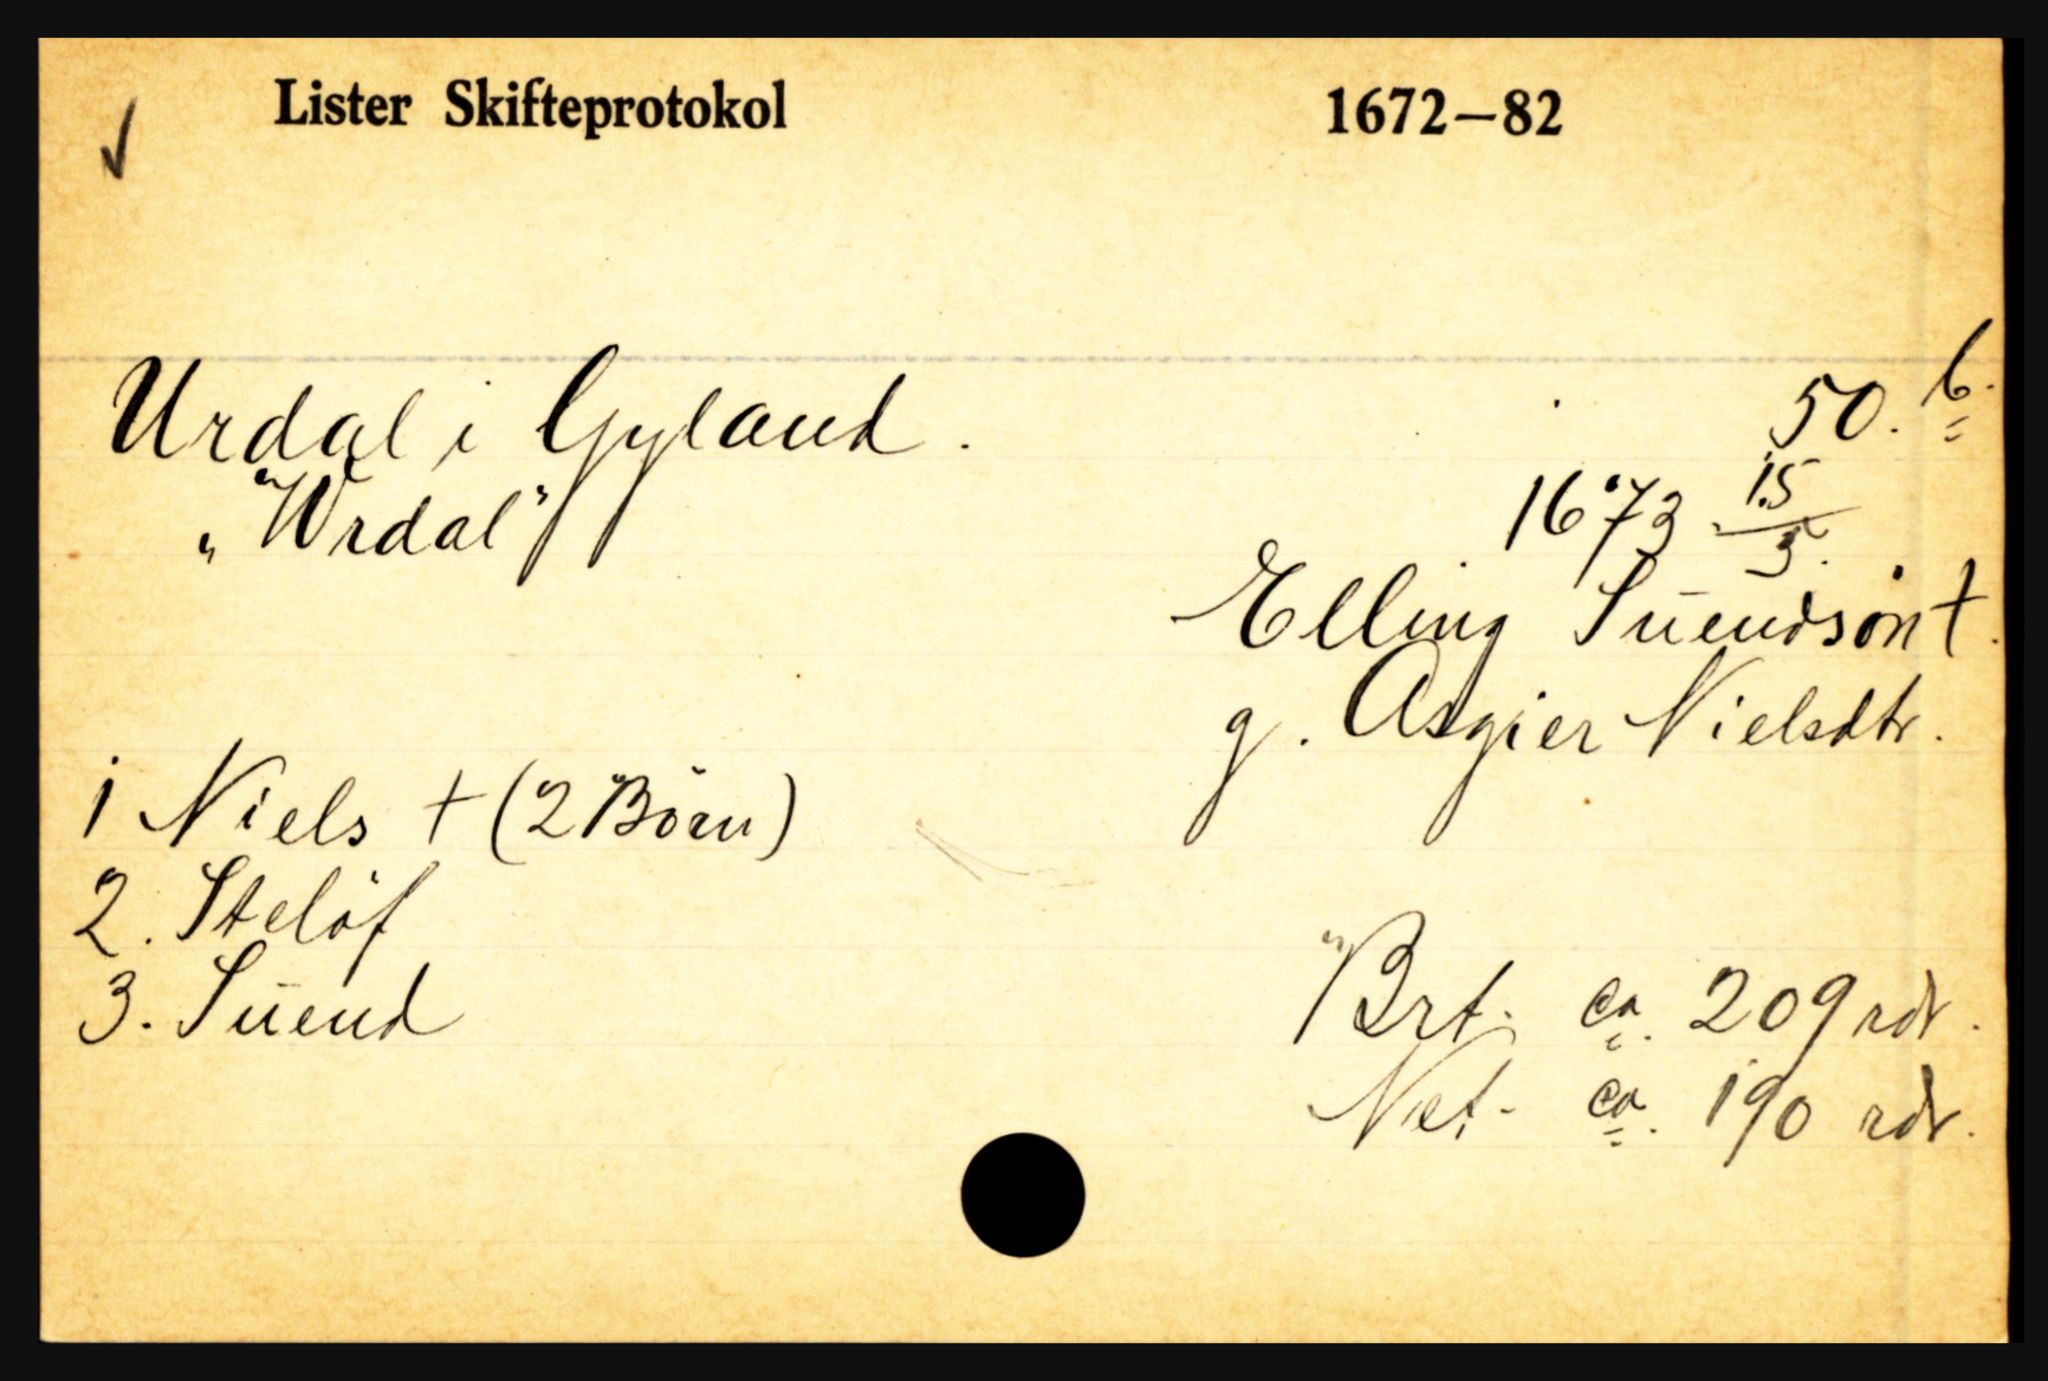 Lister Skifteprotokol 1672—82
Urdal i Gyland. 50. b.
„Wrdal" 1673 15/3.
Elling Suendsøn †.
g. Asgier Nielsdtr.
1 Niels † (2 Børn)
2. Steløf
3. Suend
Brt. ca. 209 rdr.
Net. ca. 190 rdr.